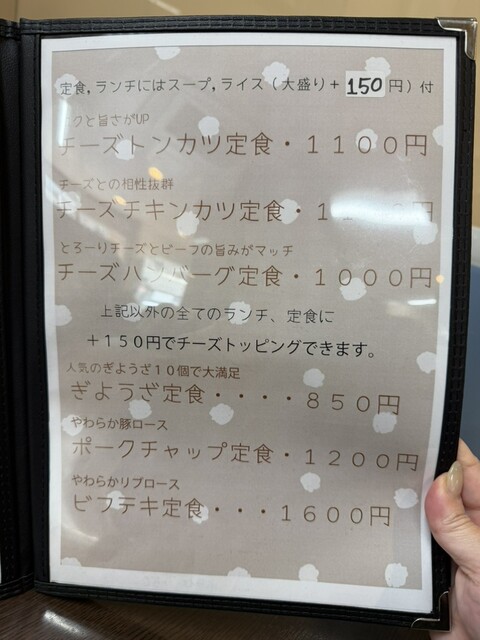 定食，ランチにはスープ，ライス（大盛り＋150円）付
クと旨さがUP
チーズトンカツ定食・１１００円
チーズとの相性抜群
チーズチキンカツ定食・１
とろーりチーズとビーフの旨みがマッチ
チーズハンバーグ定食・１０００円
上記以外の全てのランチ、定食に
＋１５０円でチーズトッピングできます。
人気のぎようざ１０個で大満足
ぎようざ定食・・・・８５０円
やわらか豚ロース
ポークチャップ定食・１２００円
やわらかリブロース
ビフテキ定食・・・１６００円